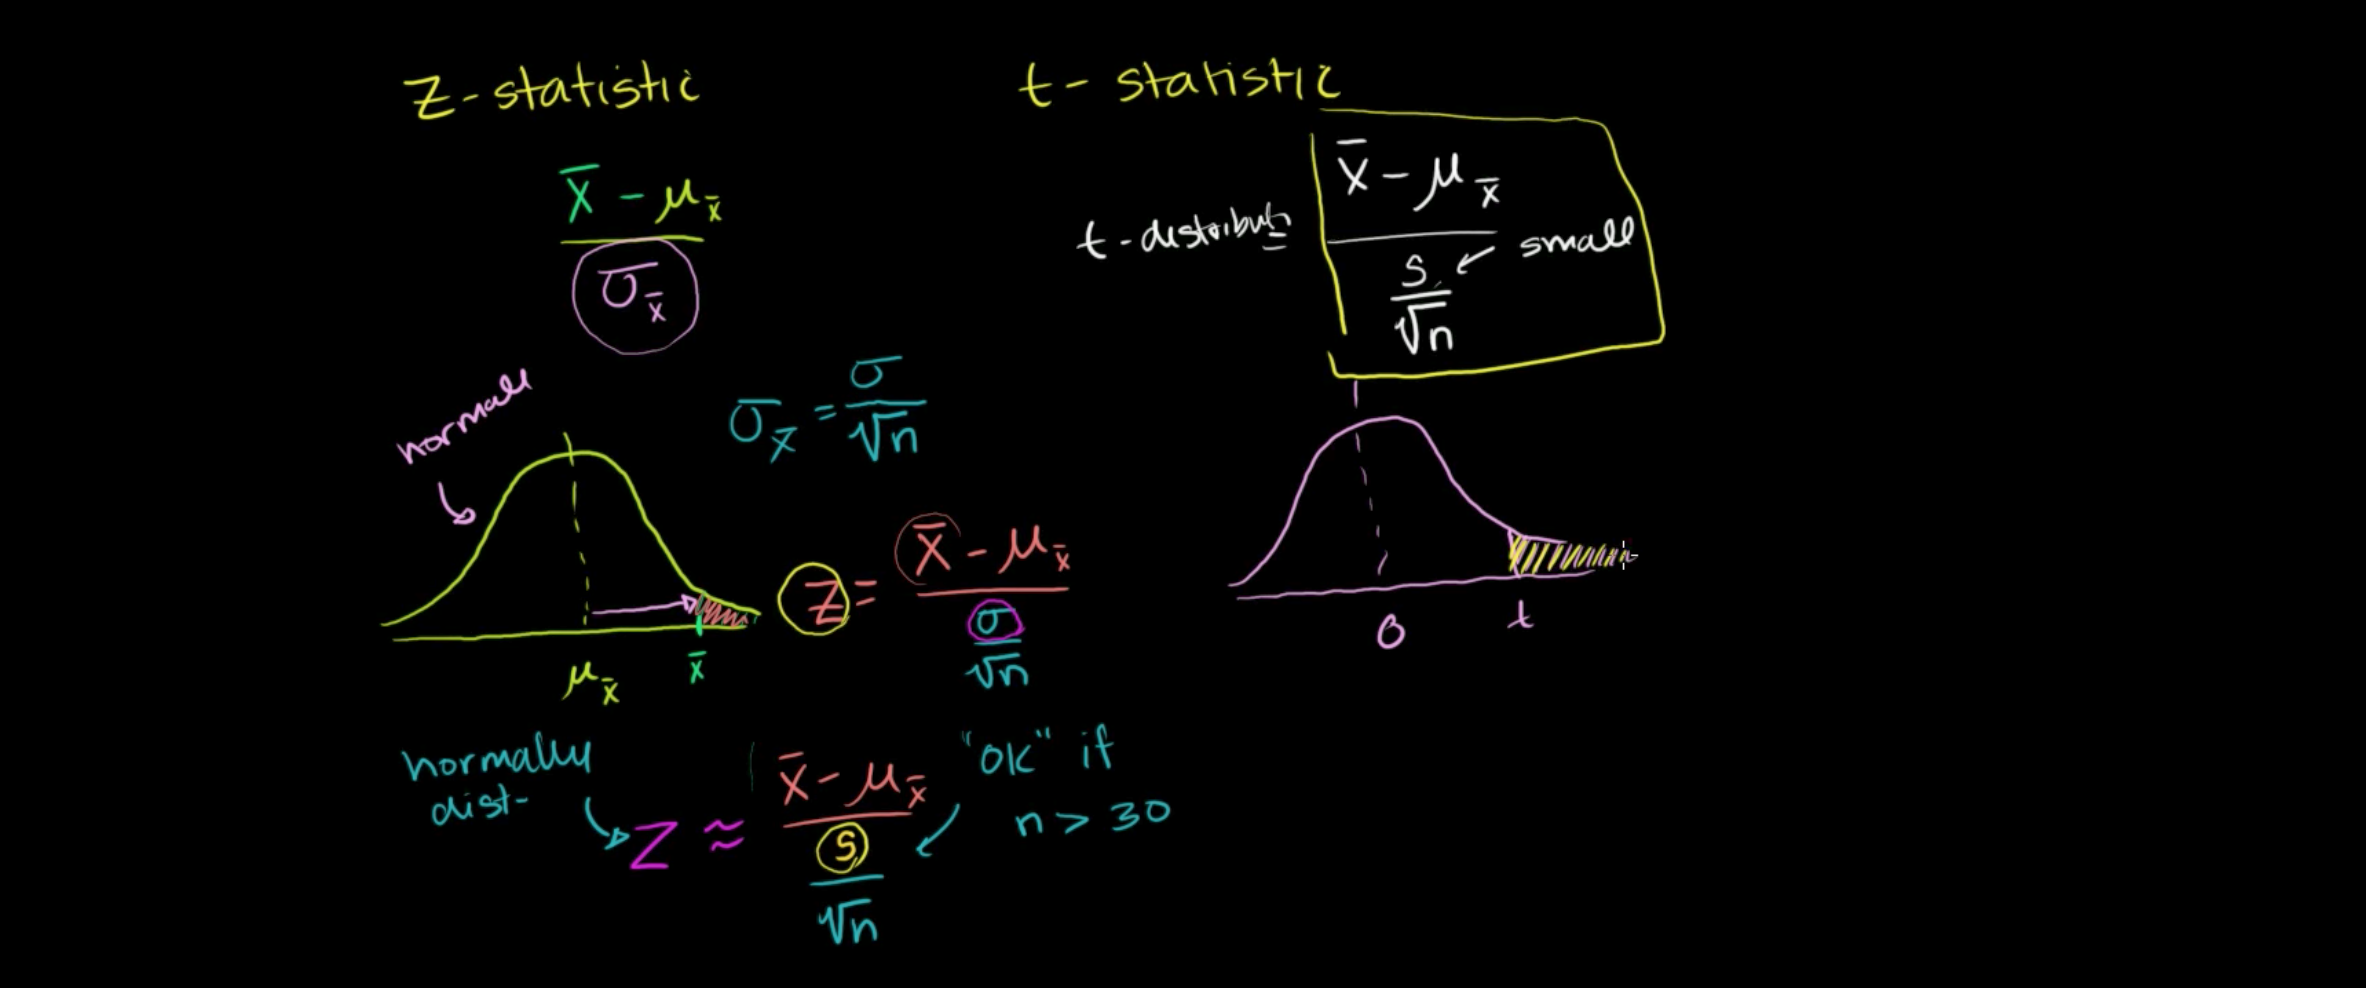 z-statistic
x̄ - μx̄
σx̄
normal
σx̄ = σ/√n
μx̄
x̄
z = x̄ - μx̄
σ
√n
normally
dist-
z ≈ x̄ - μx̄
s
√n
"ok" if
n > 30
t-statistic
t-distributi
x̄ - μx̄
s
√n
small
0
t